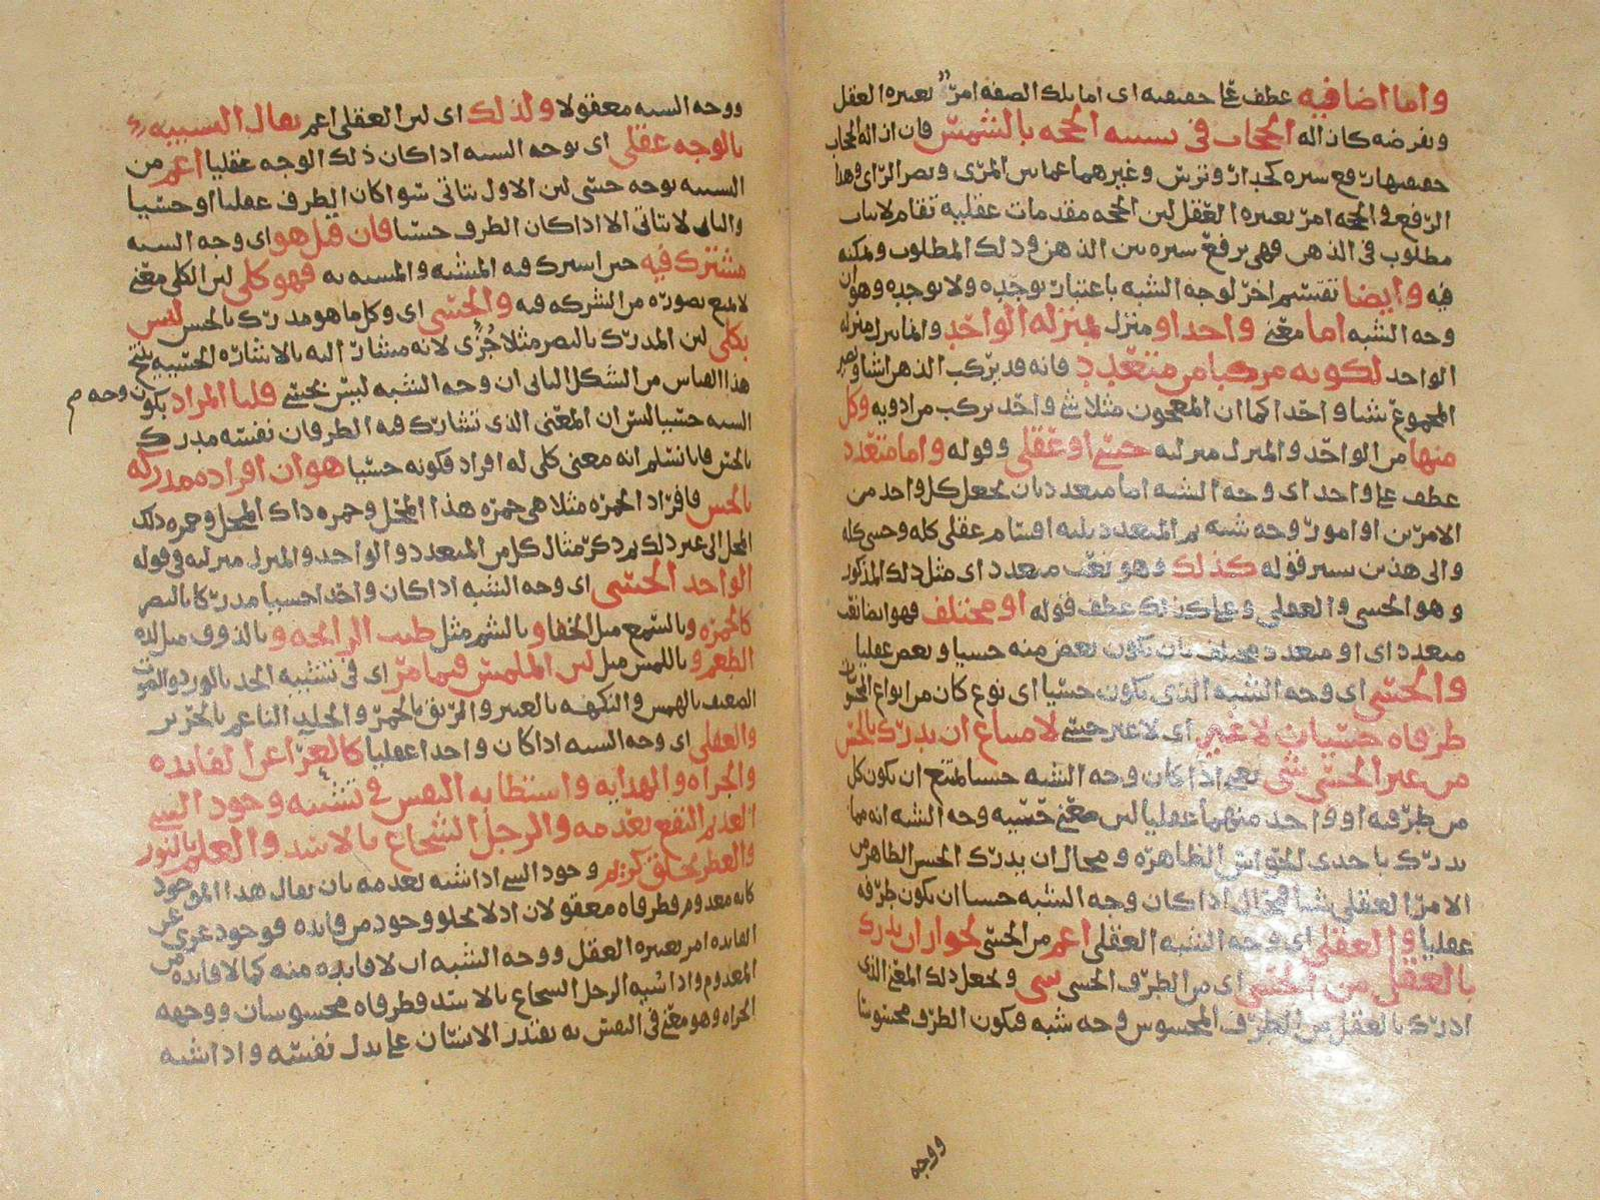 واما اضافيه عطف على حقيقيه اى اما تلك الصفه امرٌ يعتبره العقل
ويفرضه كازاله الحجاب فى تشبيه الحجه بالشمس فان ازاله الحجاب
حقيقتها رفع ستره كجدار وترس وغيرهما عما بين المرئ وبصر الرائ وهذا
الرفع فى الحجه امر يعتبره العقل لان الحجه مقدمات عقليه تقام لاثبات
مطلوب فى الذهن فهى ترفع ستره بين الذهن وذلك المطلوب ويمكنه
فيه وايضا تقسيم اخر لوجه الشبه باعتبار توحّده ولا توحده وهو ان
وجه الشبه اما معنى واحد او منزل بمنزله الواحد وانما ينزل منزله
الواحد لكونه مركبا من متعدد فانه قد يركب الذهن اشيا
المجموع شيا واحدا كما ان المعجون مثلا شى واحد مركب من ادويه وكل
منها من الواحد والمنزل منزلته حسى او عقلى وقوله واما متعدد
عطف على واحد اى وجه الشبه اما متعدد بان يجعل كل واحد من
الامرين او امور وجه شبه ثم المتعدد ثلثه اقسام عقلى كله وحسى كله
والى هذين يشير قوله كذلك وهو نعت متعدد اى مثل ذلك المذكور
وهو الحسى والعقلى وعلى كذلك عطف قوله او مختلف فهو ايضا نعت
متعدد اى او متعدد مختلف بان يكون بعض منه حسيا وبعض عقليا
والحسى اى وجه الشبه الذى يكون حسيا اى نوع كان من انواع الحسيات
طرفاه حسيان لا غير اى لا غير حسى لامتناع ان يدرك بالحس
من غير الحسى شى يعنى اذا كان وجه الشبه حسيا امتنع ان يكون كل
من طرفيه او واحد منهما عقليا لان معنى حسيه وجه الشبه انه مما
يدرك باحدى الحواس الظاهره ومحال ان يدرك الحس الظاهر من
الامر العقلى شيا فمحال اذا كان وجه الشبه حسيا ان يكون طرفه
عقليا والعقلى اى وجه الشبه العقلى اعم من الحسى لجواز ان يدرك
بالعقل من الحسى اى من الطرف الحسى شى ويجعل ذلك المعنى الذى
ادرك بالعقل من الطرف المحسوس وجه شبه فيكون الطرف محسوسا
ووجه
ووجه الشبه معقولا ولذلك اى لان العقلى اعم يقال التشبيه
بالوجه عقلى اى بوجه الشبه اذا كان ذلك الوجه عقليا اعم من
التشبيه بوجه حسى لان الاول يتاتى سوا كان الطرف عقليا او حسيا
والثانى لا يتاتى الا اذا كان الطرف حسيا فان قيل هو اى وجه الشبه
مشترك فيه حين اشترك فيه المشبه والمشبه به فهو كلى لان الكلى معنى
لا يمنع تصوره من الشركه فيه والحسى اى وكل ما هو مدرك بالحس ليس
بكلى لان المدرك بالبصر مثلا جُزءى لانه مشار اليه بالاشاره الحسيه ينتج
هذا القياس من الشكل الثانى ان وجه الشبه ليس بحسى قلنا المراد بكون وجه م
الشبه حسيا ليس ان المعنى الذى تشارك فيه الطرفان نفسه مدرك
بالحس فانا نسلم انه معنى كلى له افراد فكونه حسيا هو ان افراده مدركه
بالحس فافراد الحمره مثلا هى حمره هذا المحل وحمره ذاك المحل وحمره ذلك
المحل الى غير ذلك ثم ذكر مثال كل من المتعدد والواحد والمنزل منزلته فى قوله
الواحد الحسى اى وجه الشبه اذا كان واحدا حسيا مدركا بالبصر
كالحمره وبالسمع مثل الخفا وبالشم مثل طيب الرائحه وبالذوق مثل لذه
الطعم وباللمس مثل لين الملمس فيما مر اى فى تشبيه الخد بالورد والصوت
الضعيف بالهمس والنكهه بالعنبر والريق بالخمر والجلد الناعم بالحرير
والعقلى اى وجه الشبه اذا كان واحدا عقليا كالعرا عن الفايده
والجراه والهدايه واستطابه النفس فى تشبيه وجود الشى
العديم النفع بعدمه والرجل الشجاع بالاسد والعلم بالنور
والعطر بخلق كريم وجود الشى اذا شبه بعدمه بان يقال هذا الموجود
كانه معدوم فطرفاه معقولان اذ لا يخلو وجود من فايده فوجود عرى عن
الفايده امر يعتبره العقل ووجه الشبه ان لا فايده منه كما لا فايده من
المعدوم واذا شبه الرجل الشجاع بالاسد فطرفاه محسوسان ووجهه
الجراه وهو معنى فى النفس به يقتدر الانسان على بذل نفسه واذا شبه